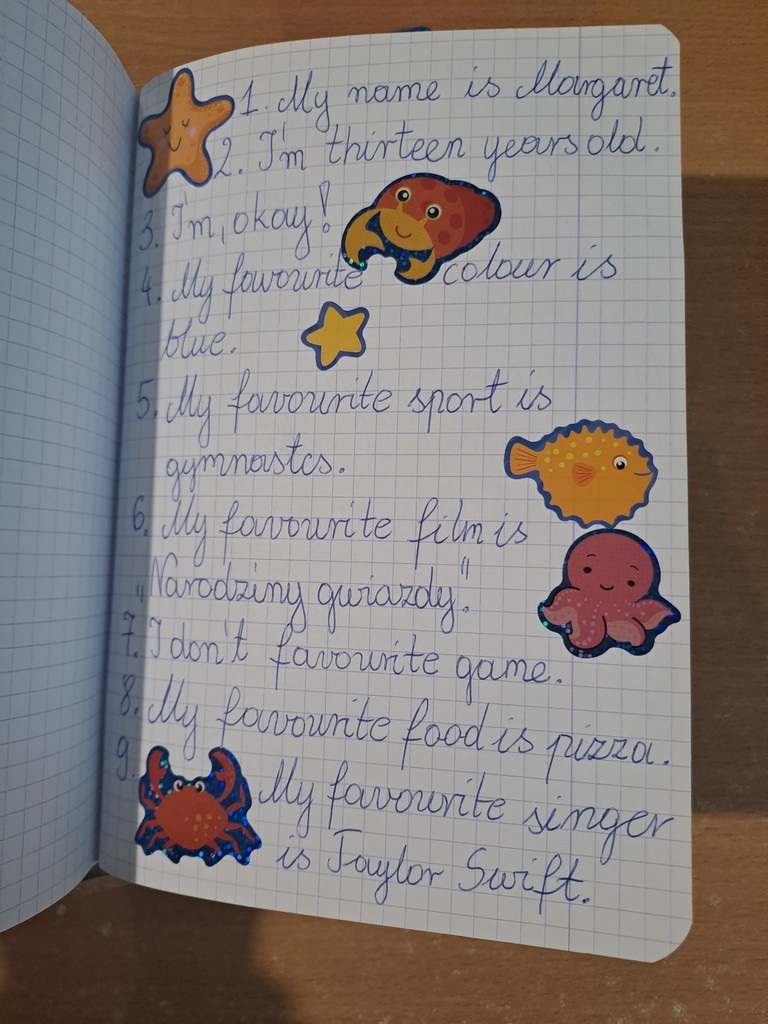 1. My name is Margaret.
2. I'm thirteen years old.
3. I'm, okay!
4. My favourite colour is
blue.
5. My favourite sport is
gymnastcs.
6. My favourite film is
„Narodziny gwiazdy."
7. I don't favourite game.
8. My favourite food is pizza.
9. My favourite singer
is Taylor Swift.